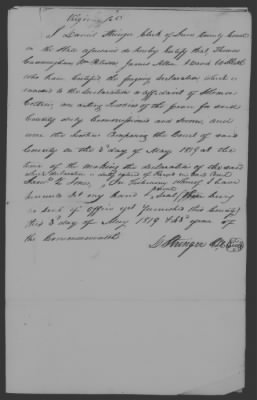 Virginia, to wit
I Daniel Stringer Clerk of Lewis County Court
in the State aforesaid do hereby Certify that Thomas
Cunningham Wm Peterson James Allen &
who have Certified the foregoing Declaration which is
annexed to the Declaration & affidavit of
Collins, are acting Justices of the peace for said
County duly Commissioned and Sworn, and
were the Justices Composing the Court of said
County on the 3d day of May 1819 at the
time of the making the declaration aforesaid
which declaration is duly entered of Record in said Court
In testimony whereof I have
hereunto set my hand & private seal (there being
no seal of office yet furnished this County)
this 3d day of May 1819 & 43d year of
the Commonwealth
D Stringer Clk Seal